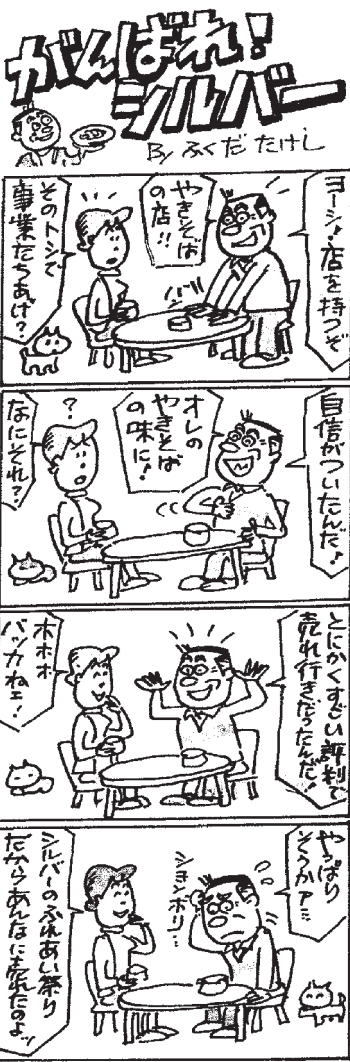 がんばれ！
シルバー
By ふくだ たけし
ヨーシ！店を持つぞ
やきそば
の店!!
バン
そのトシで
事業たちあげ？
自信がついたんだ！
オレの
やきそば
の味に！
？
なにそれ？
とにかくすごい評判で
売れ行きだったんだ！
ホホホ
バッカねェ！
やっぱり
そうかァ…
ションボリ…
シルバーのふれあい祭り
だからあんなに売れたのよッ